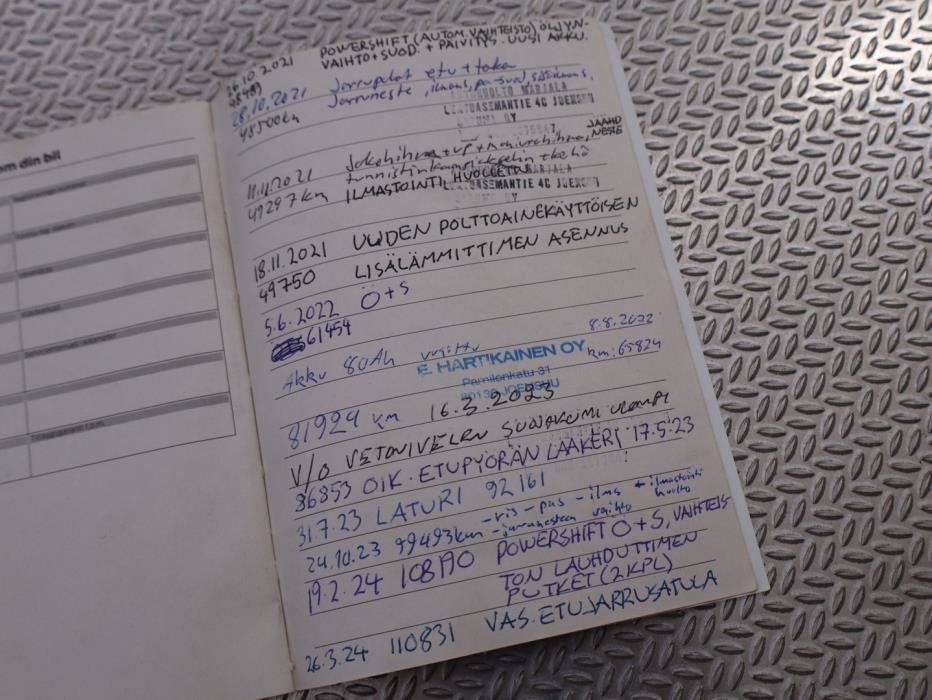 om din bil
26.10.2021 POWERSHIFT (AUTOM. VAIHTEISTO) ÖLJYN-
48489 VAIHTO + SUOD. + PÄIVITYS. UUSI AKKU.
28.10.2021 Jarrupalat etu + taka
48500km Jarruneste, ilmans, pa-suod,
MARJALA
ASEMANTIE 4C JOENSUU
OY
11.11.2021 Jakohihna + vp + JÄÄHD
NESTE
49297km
ILMASTOINTI HUOLLETTU
ASEMANTIE 4C JOENSUU
OY
18.11.2021 UUDEN POLTTOAINEKÄYTTÖISEN
49750 LISÄLÄMMITTIMEN ASENNUS
5.6.2022 Ö+S
61454
Akku 80Ah vaihto 8.8.2022
E. HARTIKAINEN OY km: 65824
Pamilonkatu 31
80130 JOENSUU
81924 km 16.3.2023
V/O VETONIVELEN SUOJAKUMI ULOMPI
86853 OIK. ETUPYÖRÄN LAAKERI 17.5.23
31.7.23 LATURI 92161
24.10.23 99493km - ris - pas - ilms + ilmastointi
huolto
- jarrunesteen vaihto
19.2.24 108190 POWERSHIFT Ö+S, VAIHTEIS-
TON LAUHDUTTIMEN
PUTKET (2KPL)
26.3.24 110831 VAS. ETUJARRUSATULA